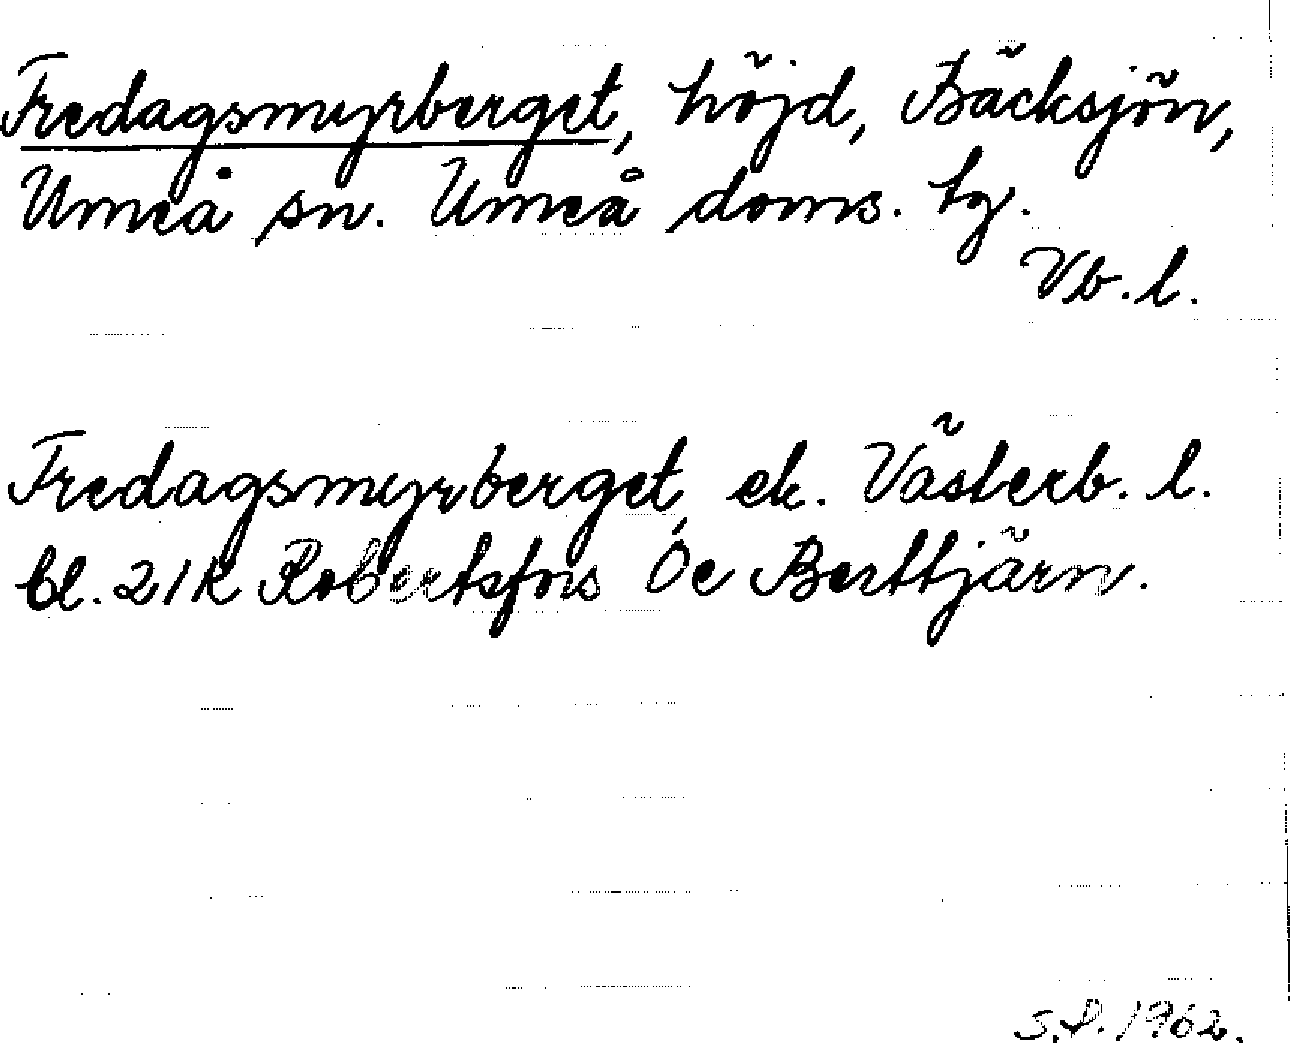 Fredagsmyrberget, höjd, Bäcksjön,
Umeå sn. Umeå doms. tg.
Vb. l.
Fredagsmyrberget, ek. Västerb. l.
bl. 21k Robertsfors Öe Berttjärn.
S.P. 1962.